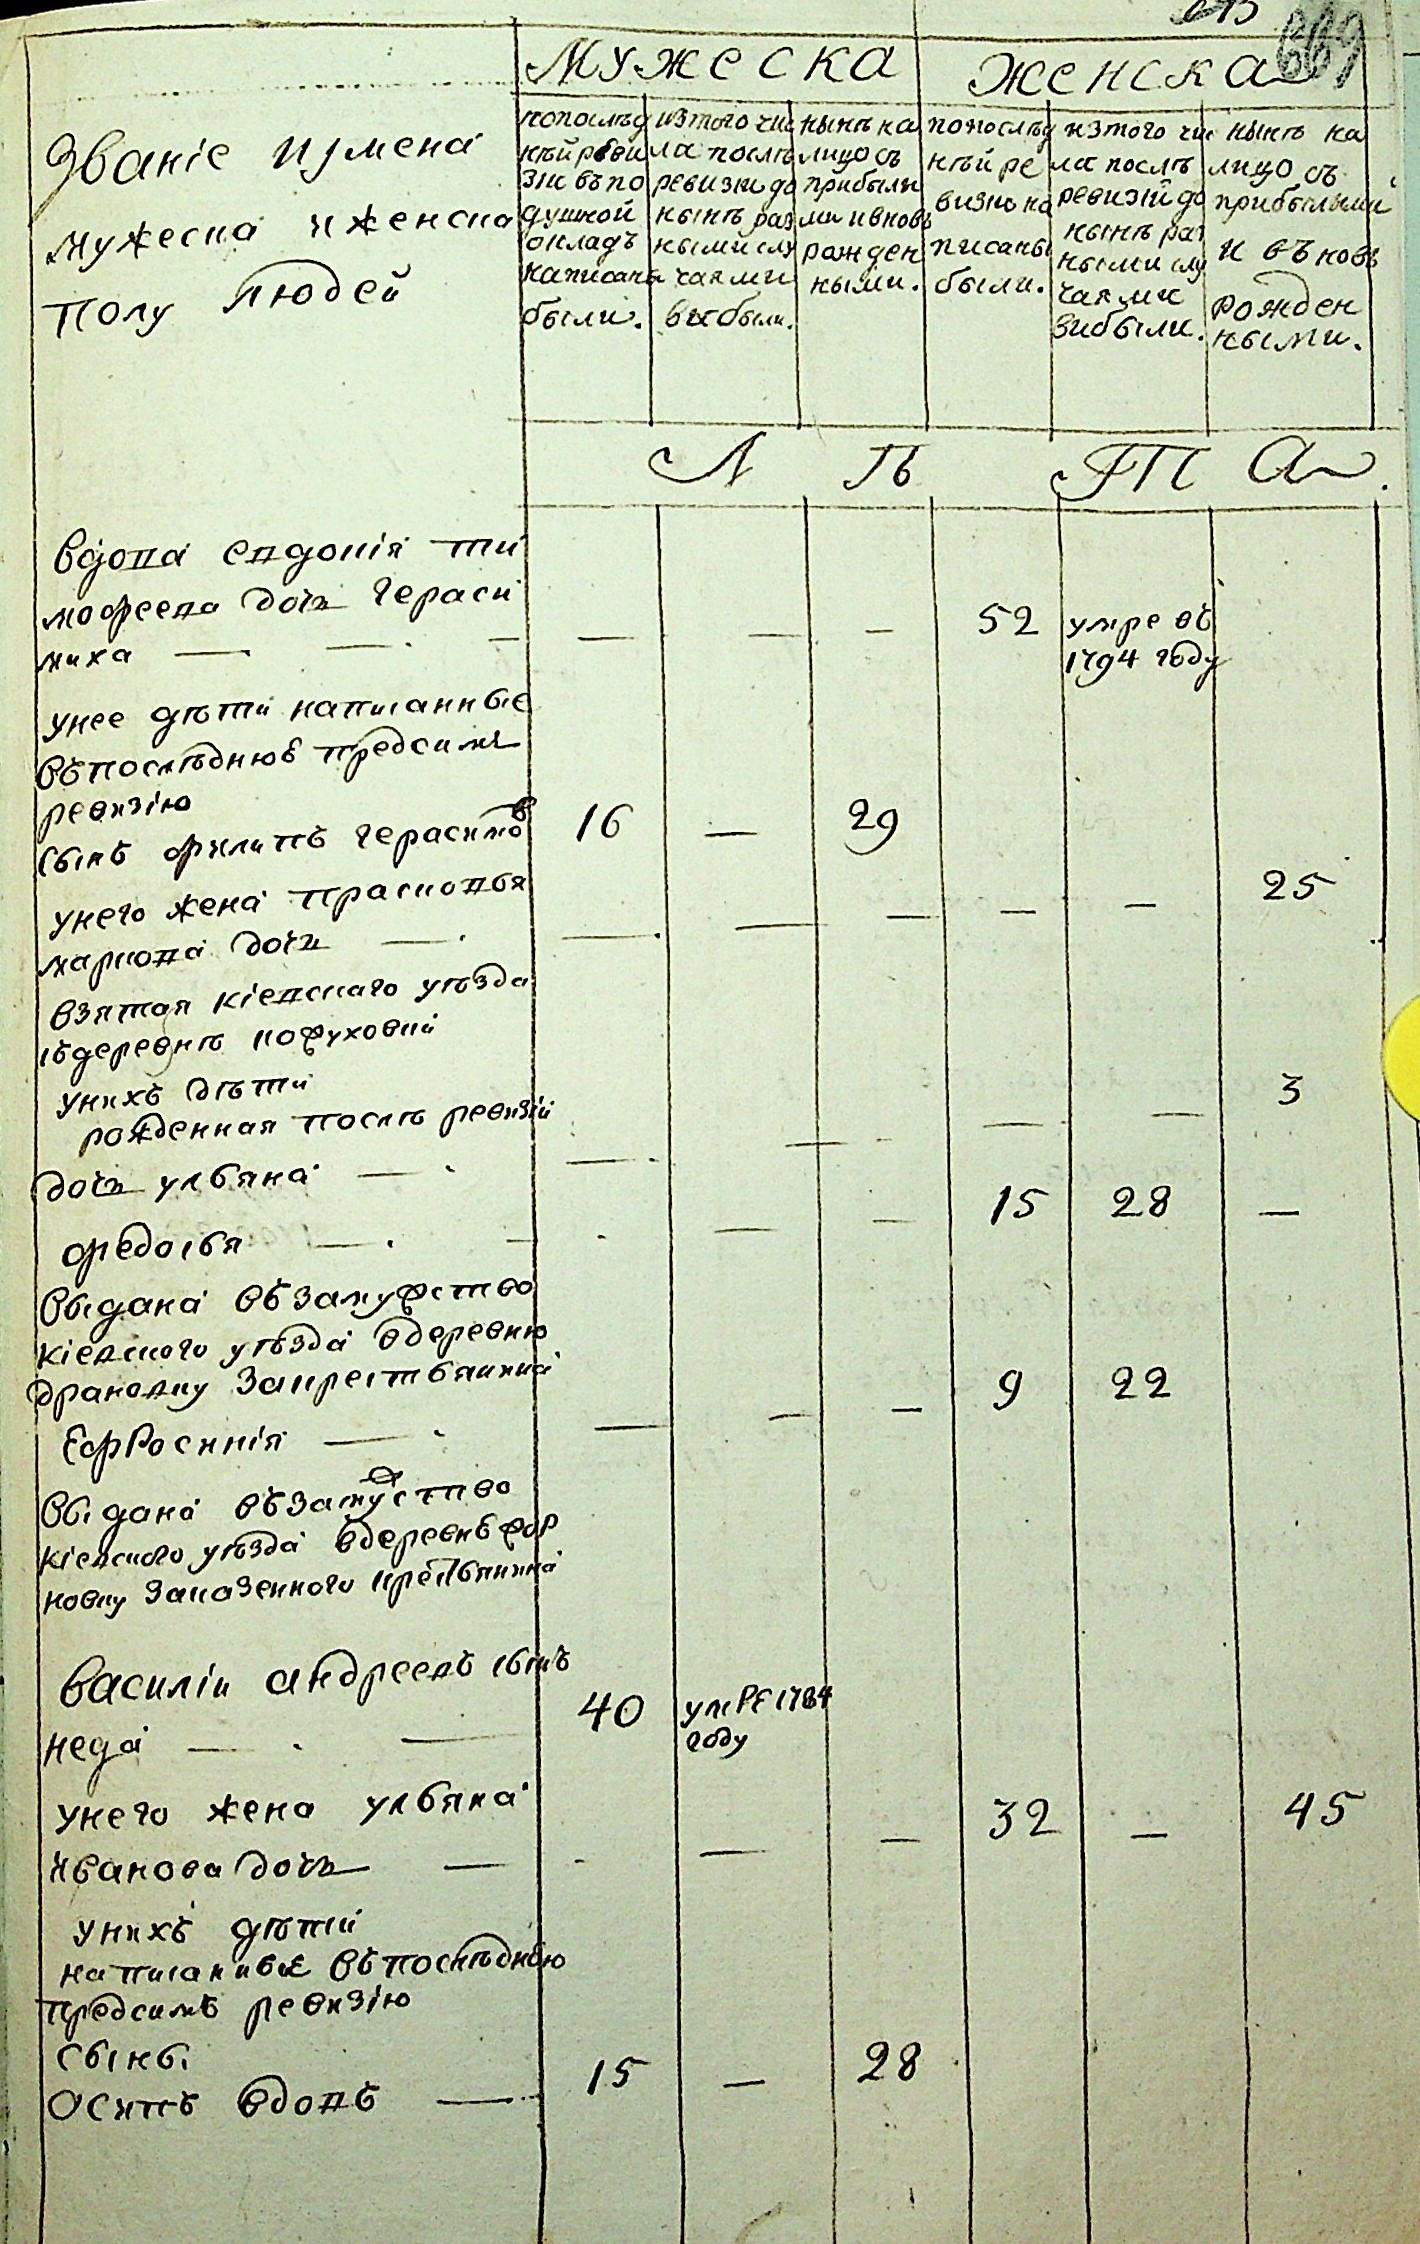 669
Мужеска Женска
Званіе и имена
мужеска и женска
полу людей
попослѣд
нѣй реви
зіи въ по
душной
окладъ
написаны
были.
изтого чи
ла послѣ
ревизіи до
нынѣ раз
ными слу
чаями
выбыли.
нынѣ на
лицо съ
прибылы
ми ивновь
рожден
ными.
попослѣд
нѣй ре
визіи на
писаны
были.
изтого чи
ла послѣ
ревизіи до
нынѣ раз
ными слу
чаями
выбыли.
нынѣ на
лицо съ
прибылыми
и въновь
рожден
ными.
Л Ѣ Т А.
вдова евдокія ти
мофеева дочь гераси
миха — — — — — — 52 умре въ
1794 году
унее дѣти написанные
въпослѣднюю предсимъ
ревизію
сынъ филипъ герасимов 16 — 29
унего жена прасковья 25
маркова дочь — — — — — —
взятая кіевскаго уѣзда
въдеревнѣ
унихъ дѣти
рожденная послѣ ревизіи 3
дочь ульяна — — — — — —
федосья — — — — 15 28 —
выдана възамужство
кіевского уѣзда вдеревню
закрестьянина
Ефросинія — — — — 9 22
выдана възамуство
кіевского уѣзда вдеревню
заказенного крестьянина
василіи андреевъ сынъ
неда — — 40 умре 1784
году
унего жена ульяна 32 — 45
иванова дочь — — —
унихъ дѣтіи
написанные въпослѣднюю
предсимъ ревизію
сыны
Осипъ вдовъ — 15 — 28